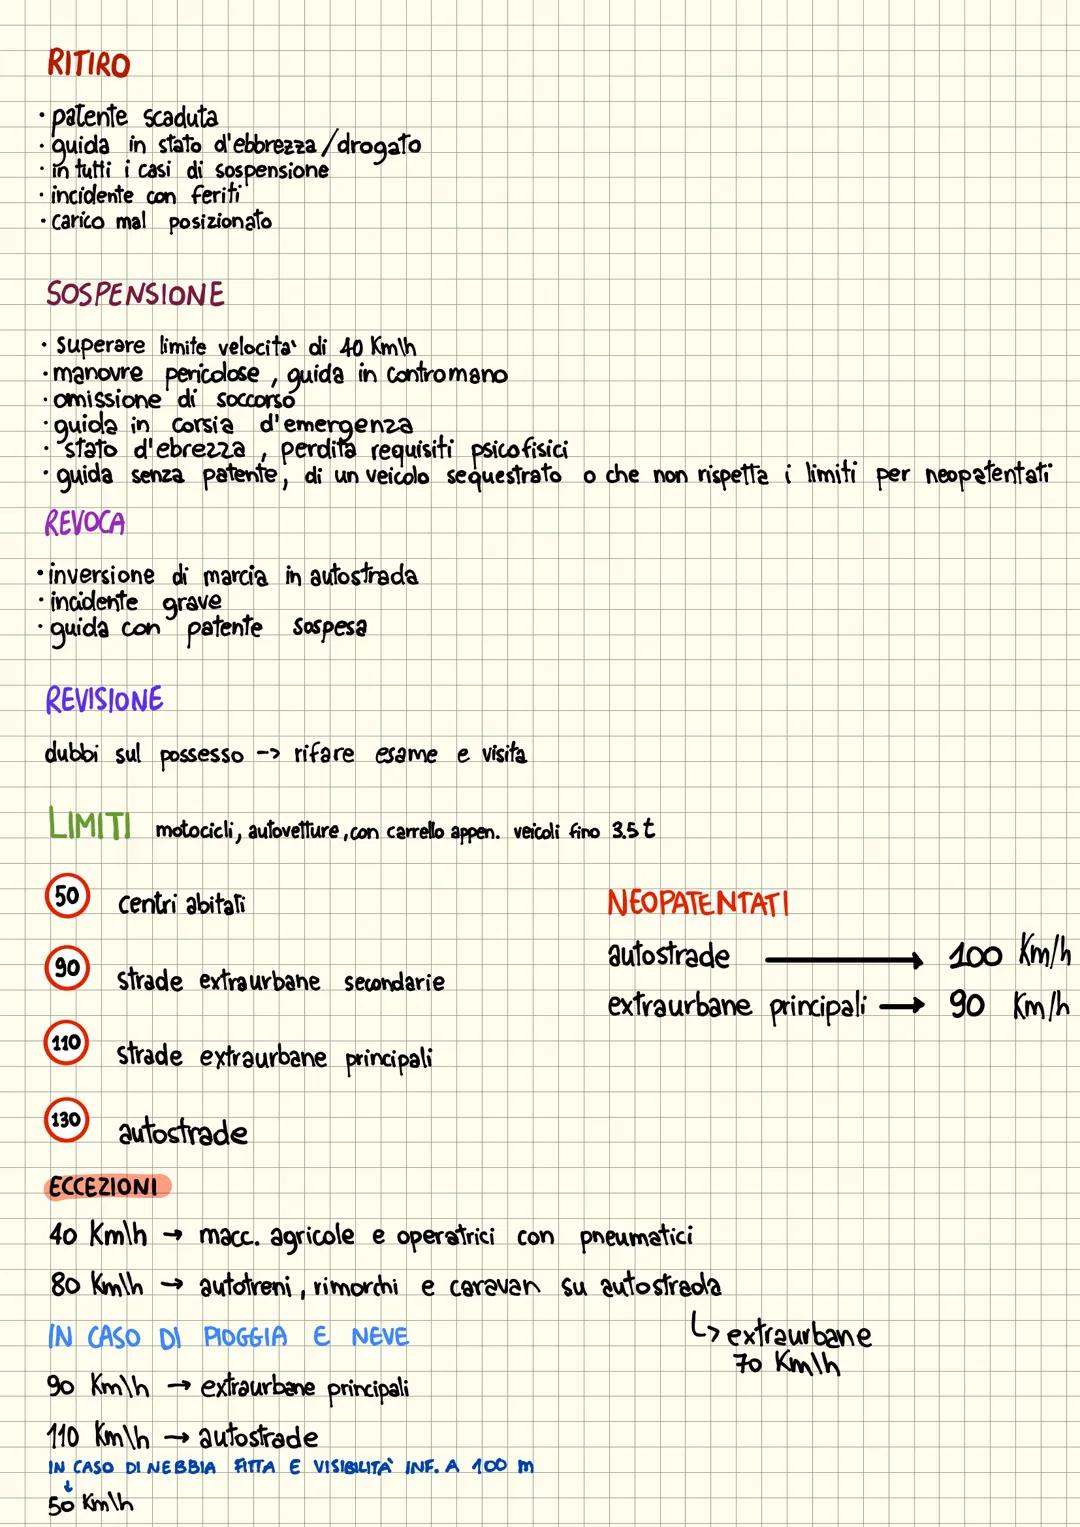 RITIRO
• patente scaduta
• guida in stato d'ebbrezza/drogato
• in tutti i casi di sospensione
• incidente con feriti
• carico mal posizionato
SOSPENSIONE
• superare limite velocita` di 40 Km\h
• manovre pericolose, guida in contromano
• omissione di soccorso
• guida in corsia d'emergenza
• stato d'ebrezza, perdita requisiti psicofisici
• guida senza patente, di un veicolo sequestrato o che non rispetta i limiti per neopatentati
REVOCA
• inversione di marcia in autostrada
• incidente grave
• guida con patente sospesa
REVISIONE
dubbi sul possesso -> rifare esame e visita
LIMITI motocicli, autovetture, con carrello appen. veicoli fino 3.5 t
50 centri abitati
90 strade extraurbane secondarie
110 strade extraurbane principali
130 autostrade
NEOPATENTATI
autostrade → 100 Km/h
extraurbane principali → 90 Km/h
ECCEZIONI
40 Km\h → macc. agricole e operatrici con pneumatici
80 Km\h → autotreni, rimorchi e caravan su autostrada
↳ extraurbane
70 Km\h
IN CASO DI PIOGGIA E NEVE
90 Km\h → extraurbane principali
110 Km\h → autostrade
IN CASO DI NEBBIA FITTA E VISIBILITA` INF. A 100 m
↓
50 Km\h